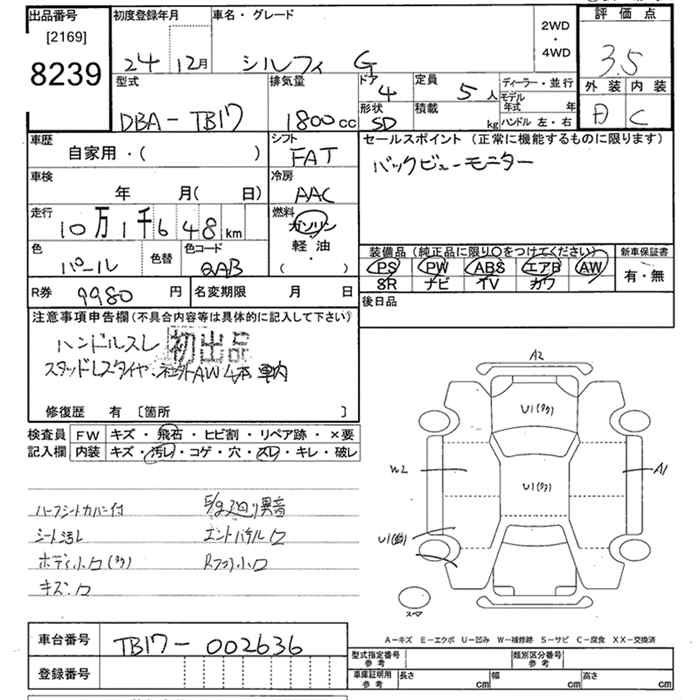 出品番号
[2169]
8239
初度登録年月
24 12月
車名・グレード
シルフィ G
2WD
・
4WD
評価点
3.5
外装 内装
D C
型式
DBA-TB17
排気量
1800cc
ドア
4
形状
SD
定員
5人
積載
kg
ディーラー・並行
モデル
年式 年
ハンドル 左・右
車歴
自家用・( )
シフト
FAT
セールスポイント (正常に機能するものに限ります)
バックビューモニター
車検
年 月( 日)
冷房
AAC
走行
10万1千648km
燃料
ガソリン
軽油・
( )
色
パール
色替
色コード
QAB
装備品(純正品に限り〇をつけてください)
PS PW ABS エアB AW
SR ナビ TV カワ
新車保証書
有・無
R券
9980円
名変期限 月 日
後日品
注意事項申告欄(不具合内容等は具体的に記入して下さい)
ハンドルスレ
初出品
スタッドレスタイヤ・社外AW4本車内
修復歴 有 [箇所 ]
検査員
記入欄
FW キズ・飛石・ヒビ割・リペア跡・×要
内装 キズ・汚レ・コゲ・穴・スレ・キレ・破レ
ハーフシートカバー付
シート汚レ
ボディ小口(多)
キズ・口
エントパネル口
Rフラ小口
A2
U1(多)
W2
U1(多)
A1
スペア
A-キズ E-エクボ U-凹み W-補修跡 S-サビ C-腐食 XX-交換済
車台番号
TB17-002636
登録番号
型式指定番号
参考
類別区分番号
参考
車庫証明用
参考
長さ cm
幅 cm
高さ cm